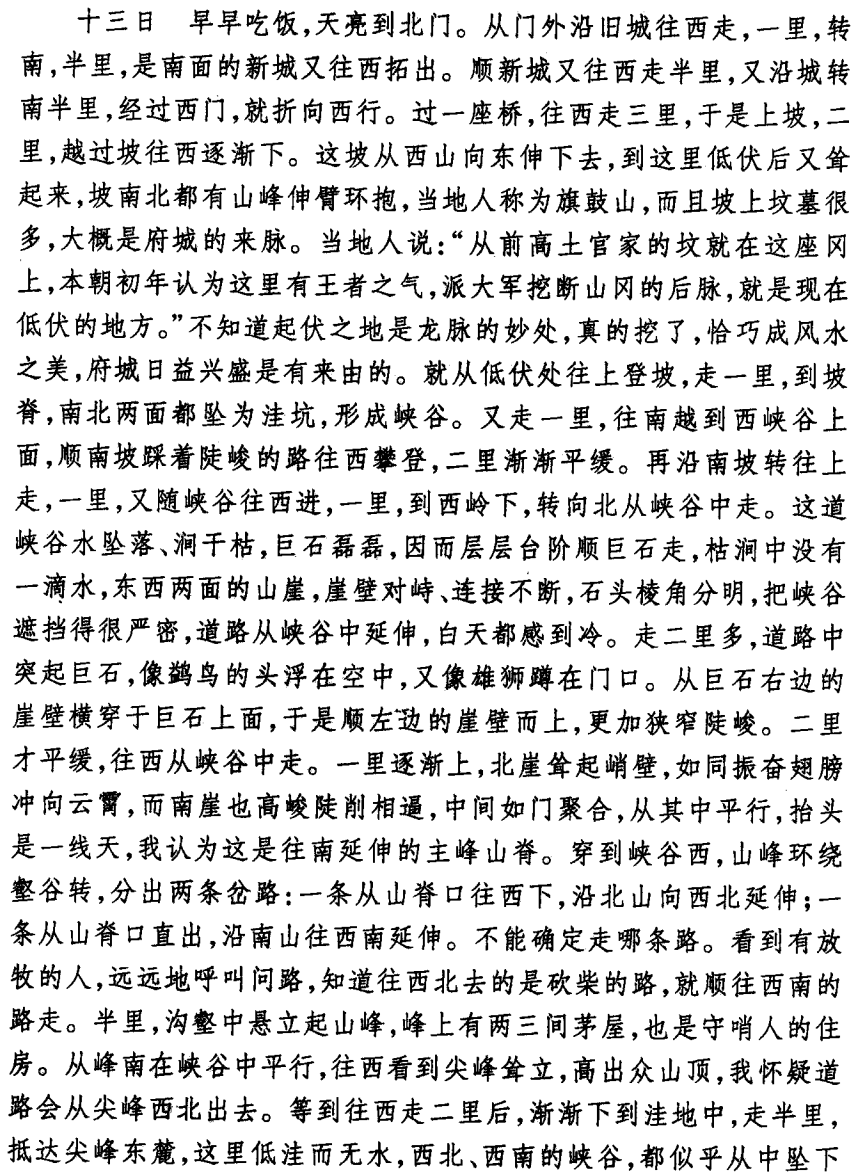 十三日　早早吃饭，天亮到北门。从门外沿旧城往西走，一里，转
南，半里，是南面的新城又往西拓出。顺新城又往西走半里，又沿城转
南半里，经过西门，就折向西行。过一座桥，往西走三里，于是上坡，二
里，越过坡往西逐渐下。这坡从西山向东伸下去，到这里低伏后又耸
起来，坡南北都有山峰伸臂环抱，当地人称为旗鼓山，而且坡上坟墓很
多，大概是府城的来脉。当地人说：“从前高土官家的坟就在这座冈
上，本朝初年认为这里有王者之气，派大军挖断山冈的后脉，就是现在
低伏的地方。”不知道起伏之地是龙脉的妙处，真的挖了，恰巧成风水
之美，府城日益兴盛是有来由的。就从低伏处往上登坡，走一里，到坡
脊，南北两面都坠为洼坑，形成峡谷。又走一里，往南越到西峡谷上
面，顺南坡踩着陡峻的路往西攀登，二里渐渐平缓。再沿南坡转往上
走，一里，又随峡谷往西进，一里，到西岭下，转向北从峡谷中走。这道
峡谷水坠落、涧干枯，巨石磊磊，因而层层台阶顺巨石走，枯涧中没有
一滴水，东西两面的山崖，崖壁对峙、连接不断，石头棱角分明，把峡谷
遮挡得很严密，道路从峡谷中延伸，白天都感到冷。走二里多，道路中
突起巨石，像鹢鸟的头浮在空中，又像雄狮蹲在门口。从巨石右边的
崖壁横穿于巨石上面，于是顺左边的崖壁而上，更加狭窄陡峻。二里
才平缓，往西从峡谷中走。一里逐渐上，北崖耸起峭壁，如同振奋翅膀
冲向云霄，而南崖也高峻陡削相逼，中间如门聚合，从其中平行，抬头
是一线天，我认为这是往南延伸的主峰山脊。穿到峡谷西，山峰环绕
壑谷转，分出两条岔路：一条从山脊口往西下，沿北山向西北延伸；一
条从山脊口直出，沿南山往西南延伸。不能确定走哪条路。看到有放
牧的人，远远地呼叫问路，知道往西北去的是砍柴的路，就顺往西南的
路走。半里，沟壑中悬立起山峰，峰上有两三间茅屋，也是守哨人的住
房。从峰南在峡谷中平行，往西看到尖峰耸立，高出众山顶，我怀疑道
路会从尖峰西北出去。等到往西走二里后，渐渐下到洼地中，走半里，
抵达尖峰东麓，这里低洼而无水，西北、西南的峡谷，都似乎从中坠下